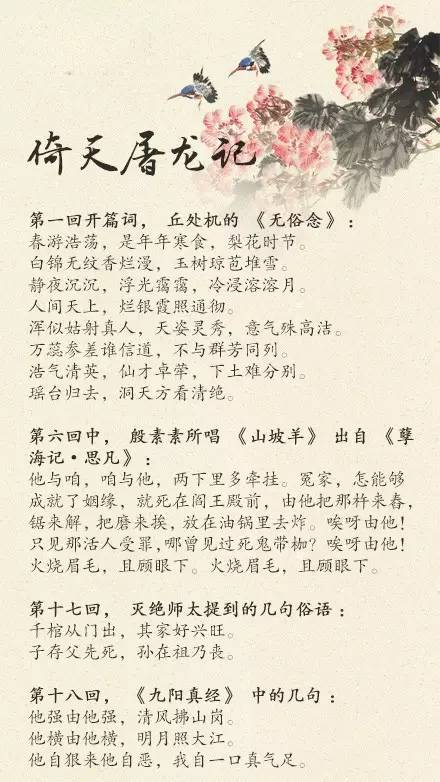 倚天屠龙记
第一回开篇词，丘处机的《无俗念》：
春游浩荡，是年年寒食，梨花时节。
白锦无纹香烂漫，玉树琼苞堆雪。
静夜沉沉，浮光霭霭，冷浸溶溶月。
人间天上，烂银霞照通彻。
浑似姑射真人，天姿灵秀，意气殊高洁。
万蕊参差谁信道，不与群芳同列。
浩气清英，仙才卓荦，下土难分别。
瑶台归去，洞天方看清绝。
第六回中，殷素素所唱《山坡羊》出自《孽
海记·思凡》：
他与咱，咱与他，两下里多牵挂。冤家，怎能够
成就了姻缘，就死在阎王殿前，由他把那杵来舂，
锯来解，把磨来挨，放在油锅里去炸。唉呀由他！
只见那活人受罪，哪曾见过死鬼带枷？唉呀由他！
火烧眉毛，且顾眼下。火烧眉毛，且顾眼下。
第十七回，灭绝师太提到的几句俗语：
千棺从门出，其家好兴旺。
子存父先死，孙在祖乃丧。
第十八回，《九阳真经》中的几句：
他强由他强，清风拂山岗。
他横由他横，明月照大江。
他自狠来他自恶，我自一口真气足。